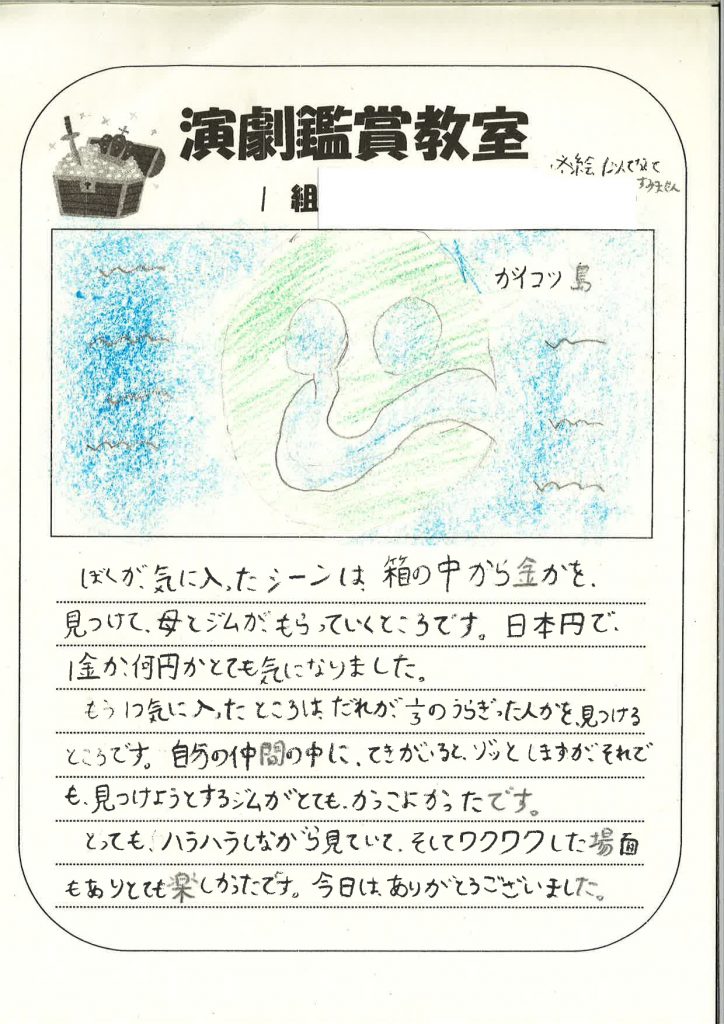 演劇鑑賞教室
※絵 にてなくて
すみません
1 組
ガイコツ島
ぼくが、気に入ったシーンは、箱の中から金かを、
見つけて、母とジムが、もらっていくところです。日本円で、
1金か、何円かとても気になりました。
もう1つ気に入ったところは、だれが、1/3のうらぎった人かを、見つける
ところです。自分の仲間の中に、てきがいると、ゾッとしますが、それで
も、見つけようとするジムがとても、かっこよかったです。
とっても、ハラハラしながら見ていて、そしてワクワクした場面
もありとても楽しかったです。今日は、ありがとうございました。